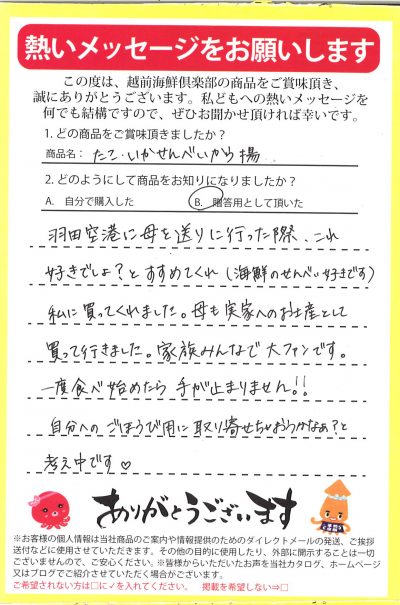 熱いメッセージをお願いします
この度は、越前海鮮倶楽部の商品をご賞味頂き、
誠にありがとうございます。私どもへの熱いメッセージを
何でも結構ですので、ぜひお聞かせ頂ければ幸いです。
1. どの商品をご賞味頂きましたか?
商品名: たこ・いかせんべいから揚
2. どのようにして商品をお知りになりましたか?
A. 自分で購入した B. 贈答用として頂いた
羽田空港に母を送りに行った際、これ
好きでしょ?とすすめてくれ(海鮮のせんべい好きです)
私に買ってくれました。母も実家へのお土産として
買って行きました。家族みんなで大ファンです。
一度食べ始めたら手が止まりません!!
自分へのごほうび用に取り寄せちゃおうかなぁ?と
考え中です♡
ありがとうございます
※お客様の個人情報は当社商品のご案内や情報提供のためのダイレクトメールの発送、ご挨拶
送付などに使用させていただきます。その他の目的に使用したり、外部に開示することは一切
ございませんので、ご安心ください。※皆様からいただいたお声を当社カタログ、ホームページ
又はブログでご紹介させていただく場合がございます。
ご希望されない方は□に✓を入れてください。 掲載を希望しない⇒□